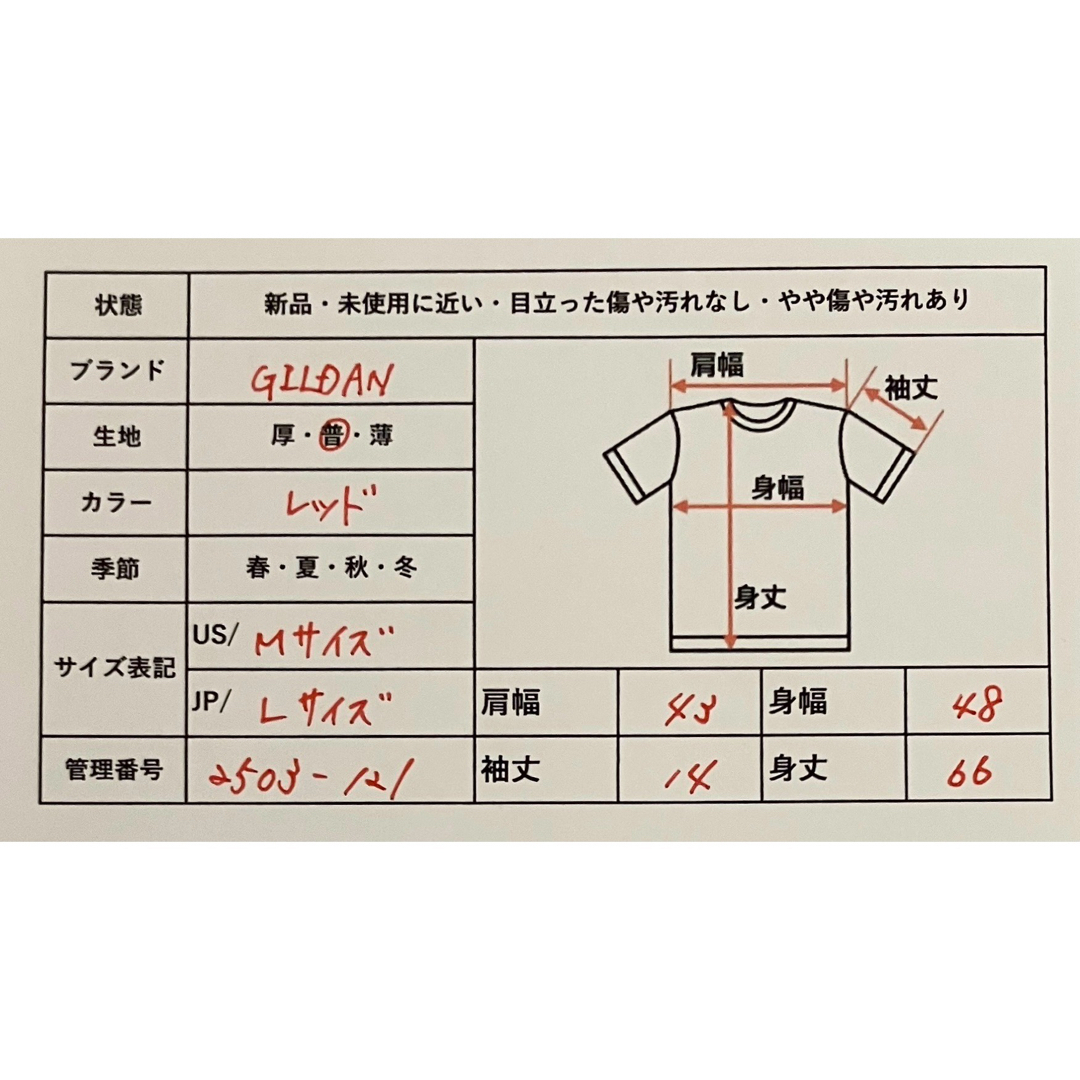 状態 新品・未使用に近い・目立った傷や汚れなし・やや傷や汚れあり
ブランド GILDAN
生地 厚・普・薄
カラー レッド
季節 春・夏・秋・冬
サイズ表記
US/ Mサイズ
JP/ Lサイズ
管理番号 2503-121
肩幅
袖丈
身幅
身丈
肩幅 43 身幅 48
袖丈 14 身丈 66